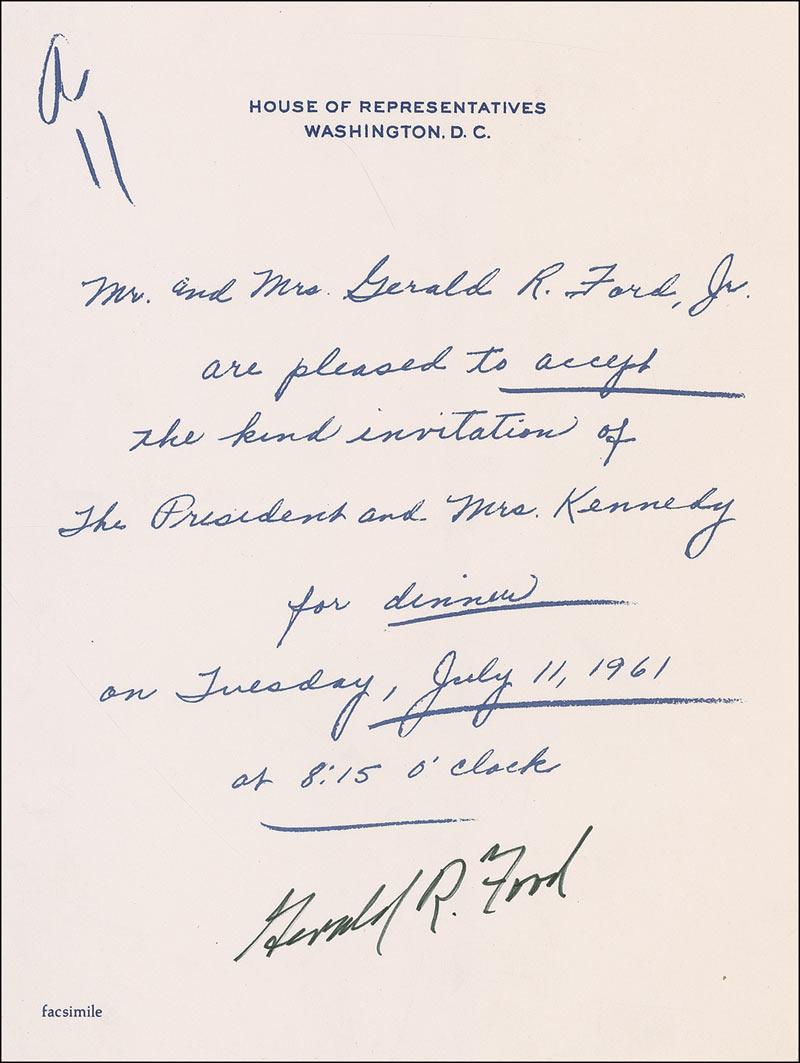 a
11
HOUSE OF REPRESENTATIVES
WASHINGTON, D. C.
Mr. and Mrs. Gerald R. Ford, Jr.
are pleased to accept
the kind invitation of
The President and Mrs. Kennedy
for dinner
on Tuesday, July 11, 1961
at 8:15 o'clock
Gerald R. Ford
facsimile